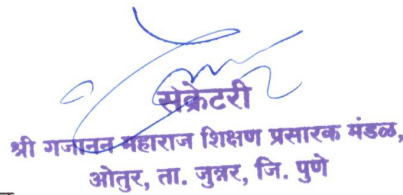 सेक्रेटरी
श्री गजानन महाराज शिक्षण प्रसारक मंडळ,
ओतुर, ता. जुन्नर, जि. पुणे